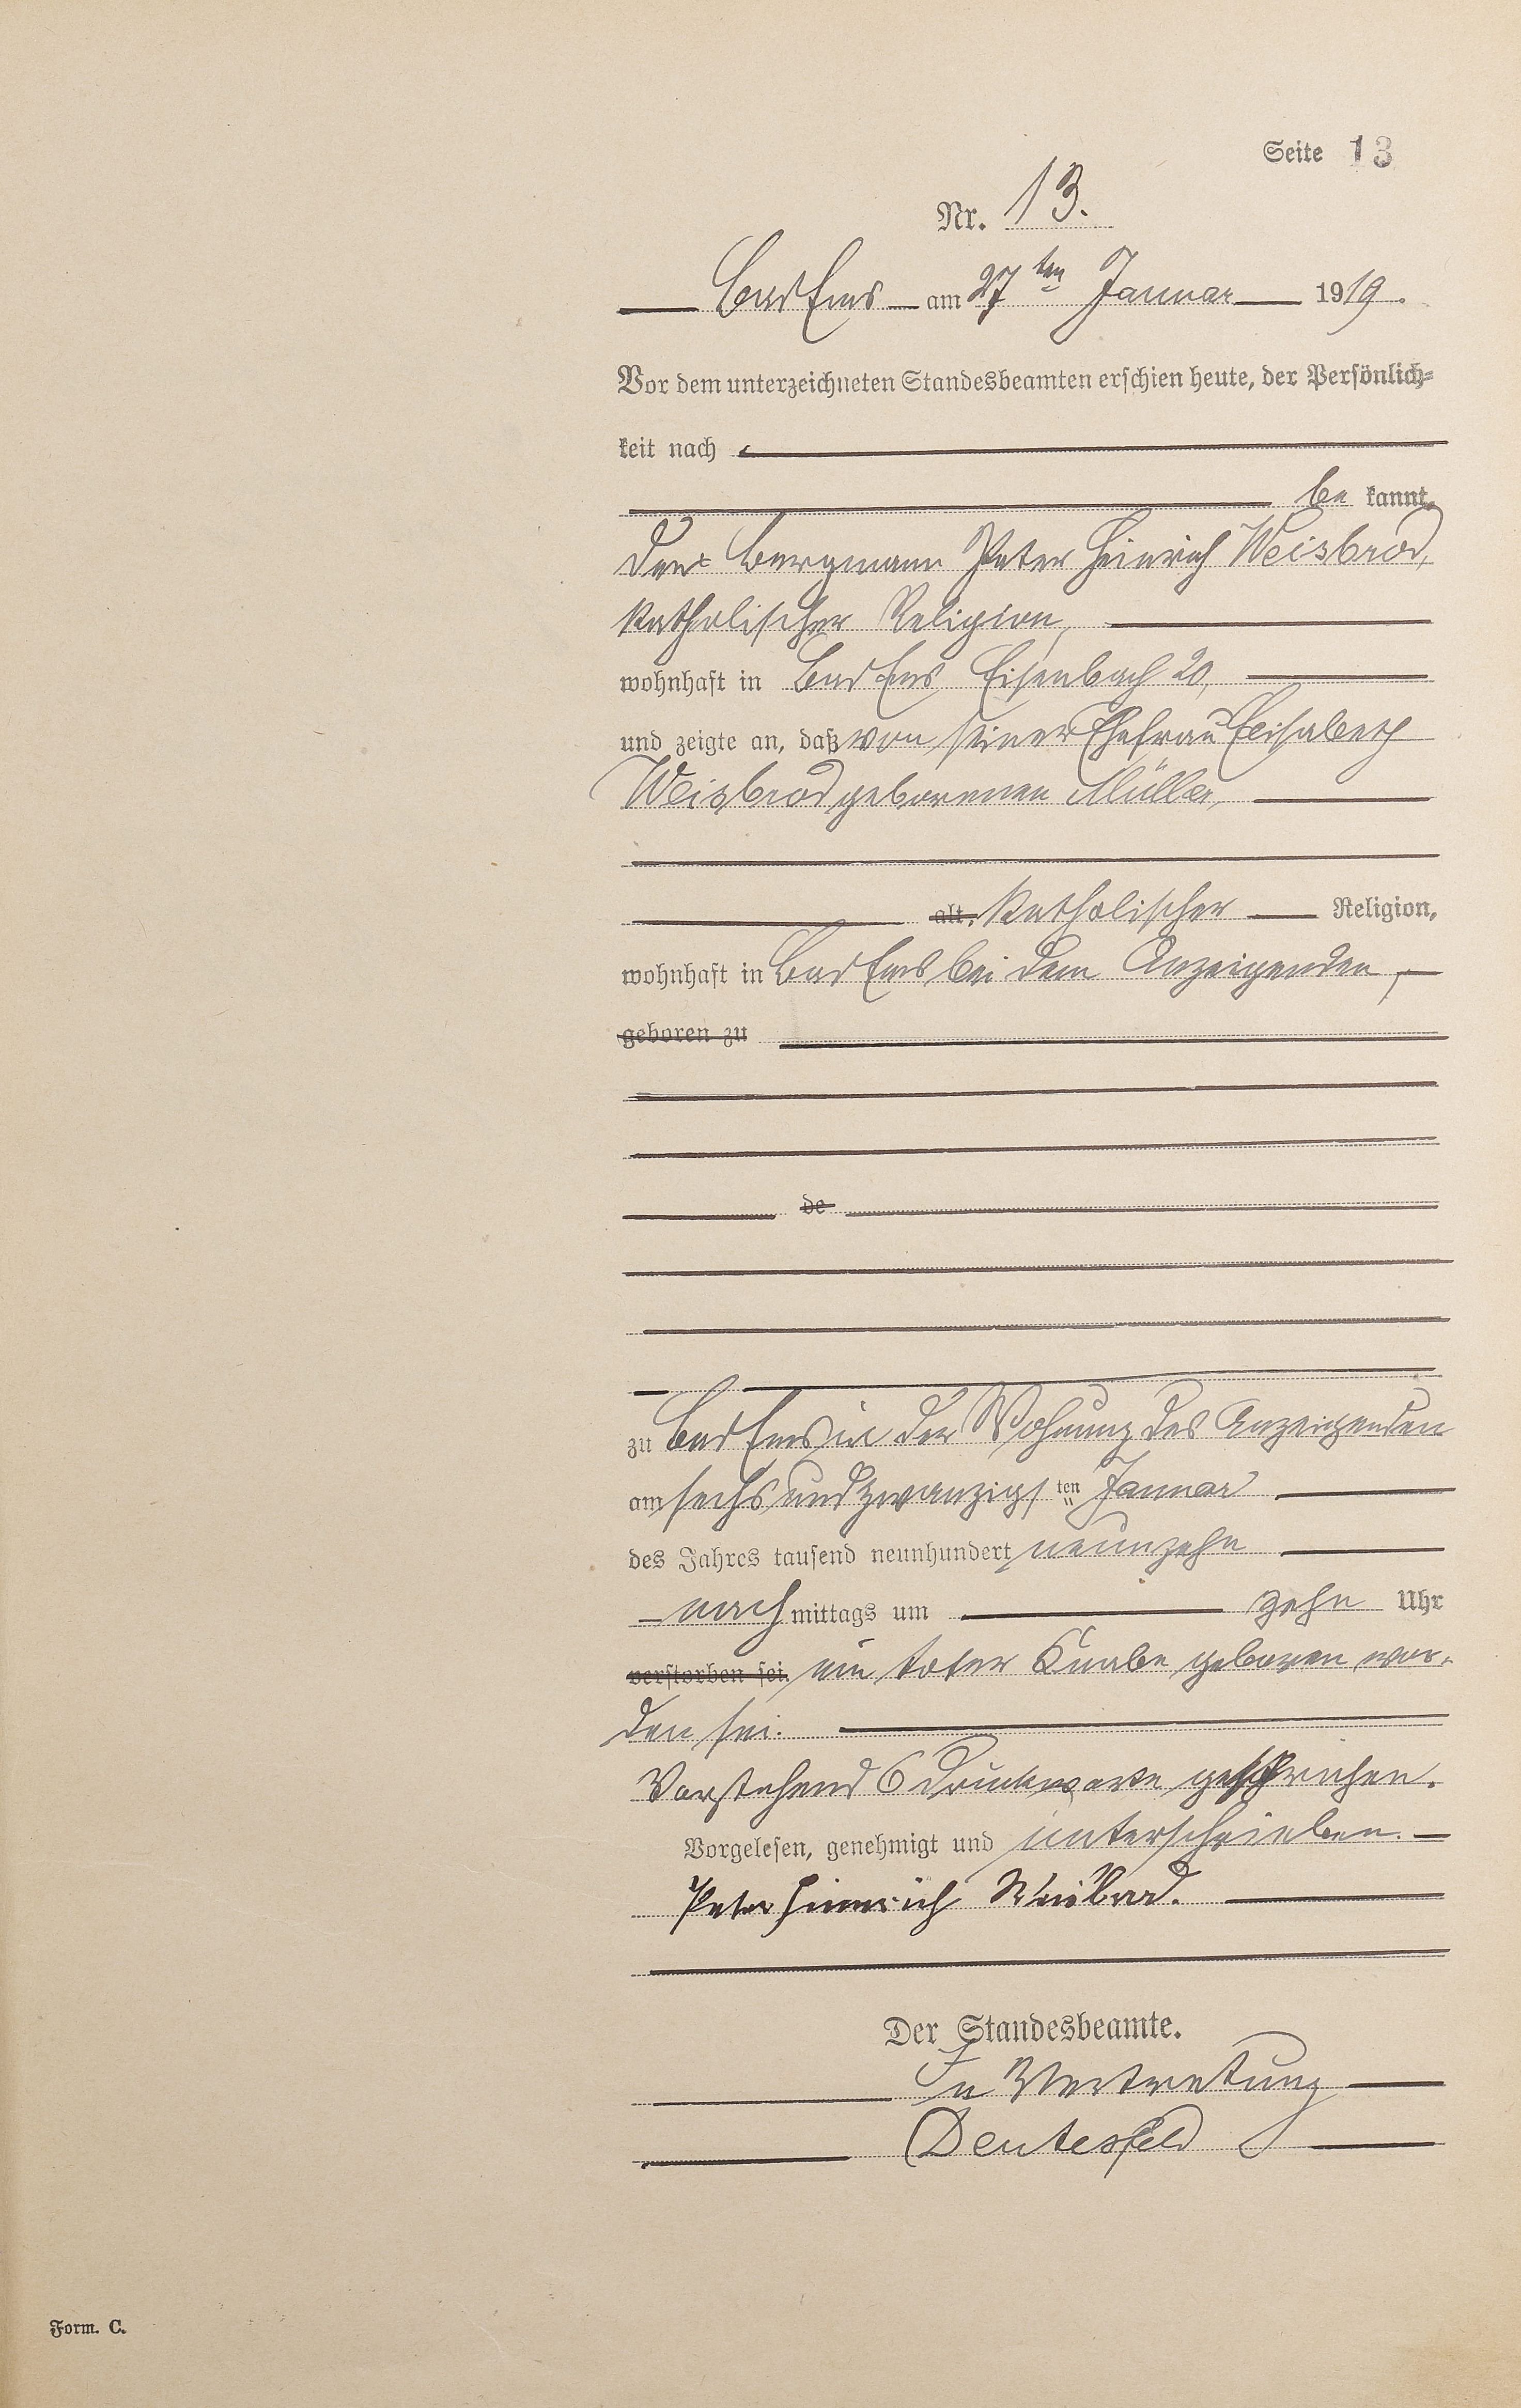 Seite 13
Nr. 13.
Bad Ems am 27ten Januar 1919.
Vor dem unterzeichneten Standesbeamten erschien heute, der Persönlich-
keit nach
be kannt,
der Bergmann Peter Heinrich Weisbrod,
katholischer Religion,
wohnhaft in Bad Ems, Eisenbach 20,
und zeigte an, daß von seiner Ehefrau Elisabeth
Weisbrod geborenen Müller,
alt, katholischer Religion,
wohnhaft in Bad Ems bei dem Anzeigenden,
geboren zu
de
zu Bad Ems in der Wohnung des Anzeigenden
am sechsundzwanzigsten Januar
des Jahres tausend neunhundert neunzehn
nach mittags um zehn Uhr
verstorben sei. ein toter Knabe geboren wor-
den sei.
Vorstehend 6 Druckworte gestrichen.
Vorgelesen, genehmigt und unterschrieben.
Peter Heinrich Weisbrod.
Der Standesbeamte.
In Vertretung
Deutesfeld
Form. C.